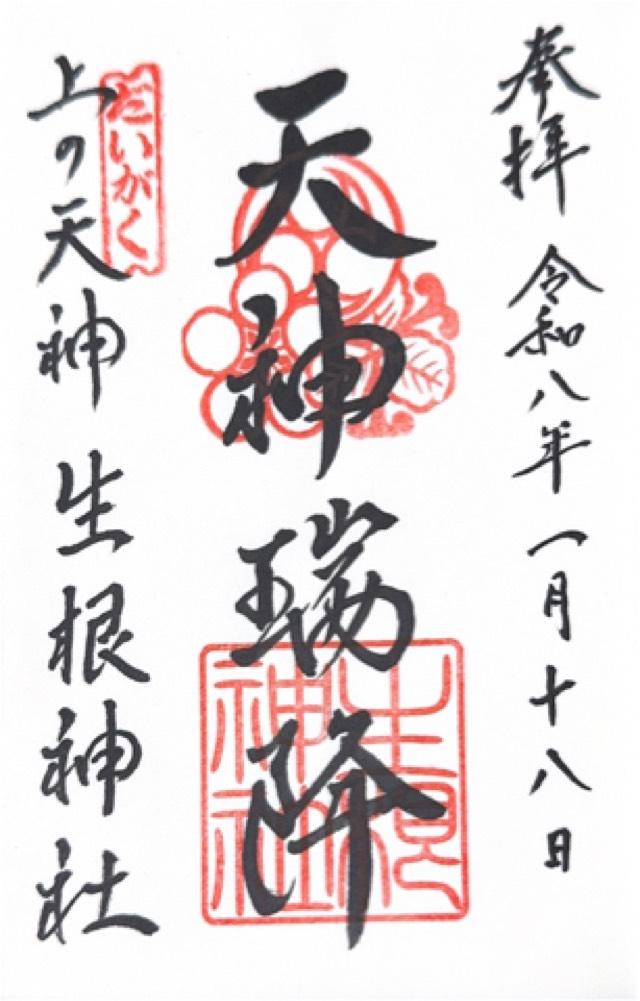 奉拝 令和八年一月十八日
天神瑞降
生根神社
だいがく
上の天神 生根神社